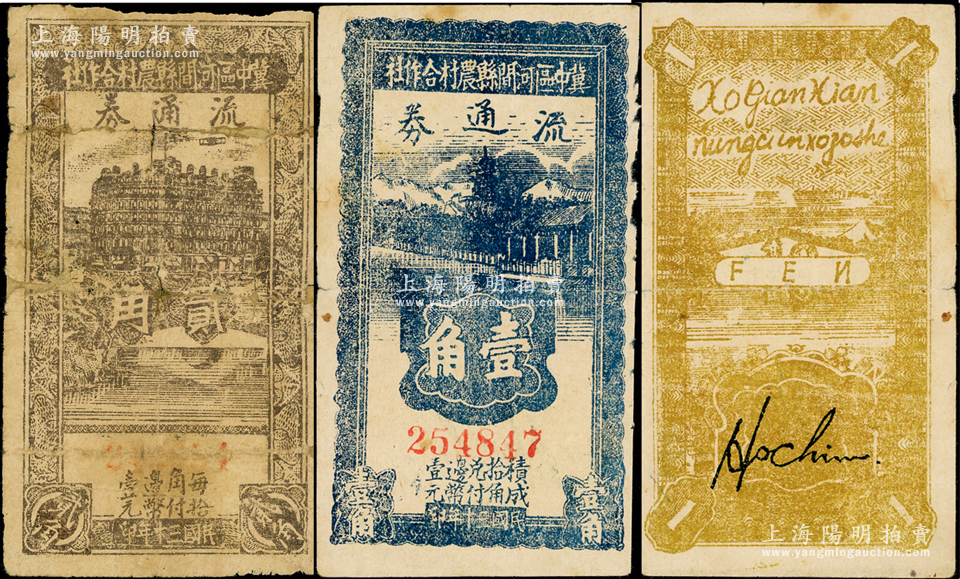 上海陽明拍賣
www.yangmingauction.com
社作合村農縣間河區中冀
券通流
角貳
每
拾角付
邊幣
壹元
印年十三國民
社作合村農縣間河區中冀
券通流
角壹
254847
積成
拾角
兌付
邊幣
壹元
壹角
壹角
印年十三國民
上海陽明拍賣
www.yangmingauction.com
1
1
Xo Gian Xian
nungcunxozoshe
FEN
Hochim.
1
1
上海陽明拍賣
www.yangmingauction.com